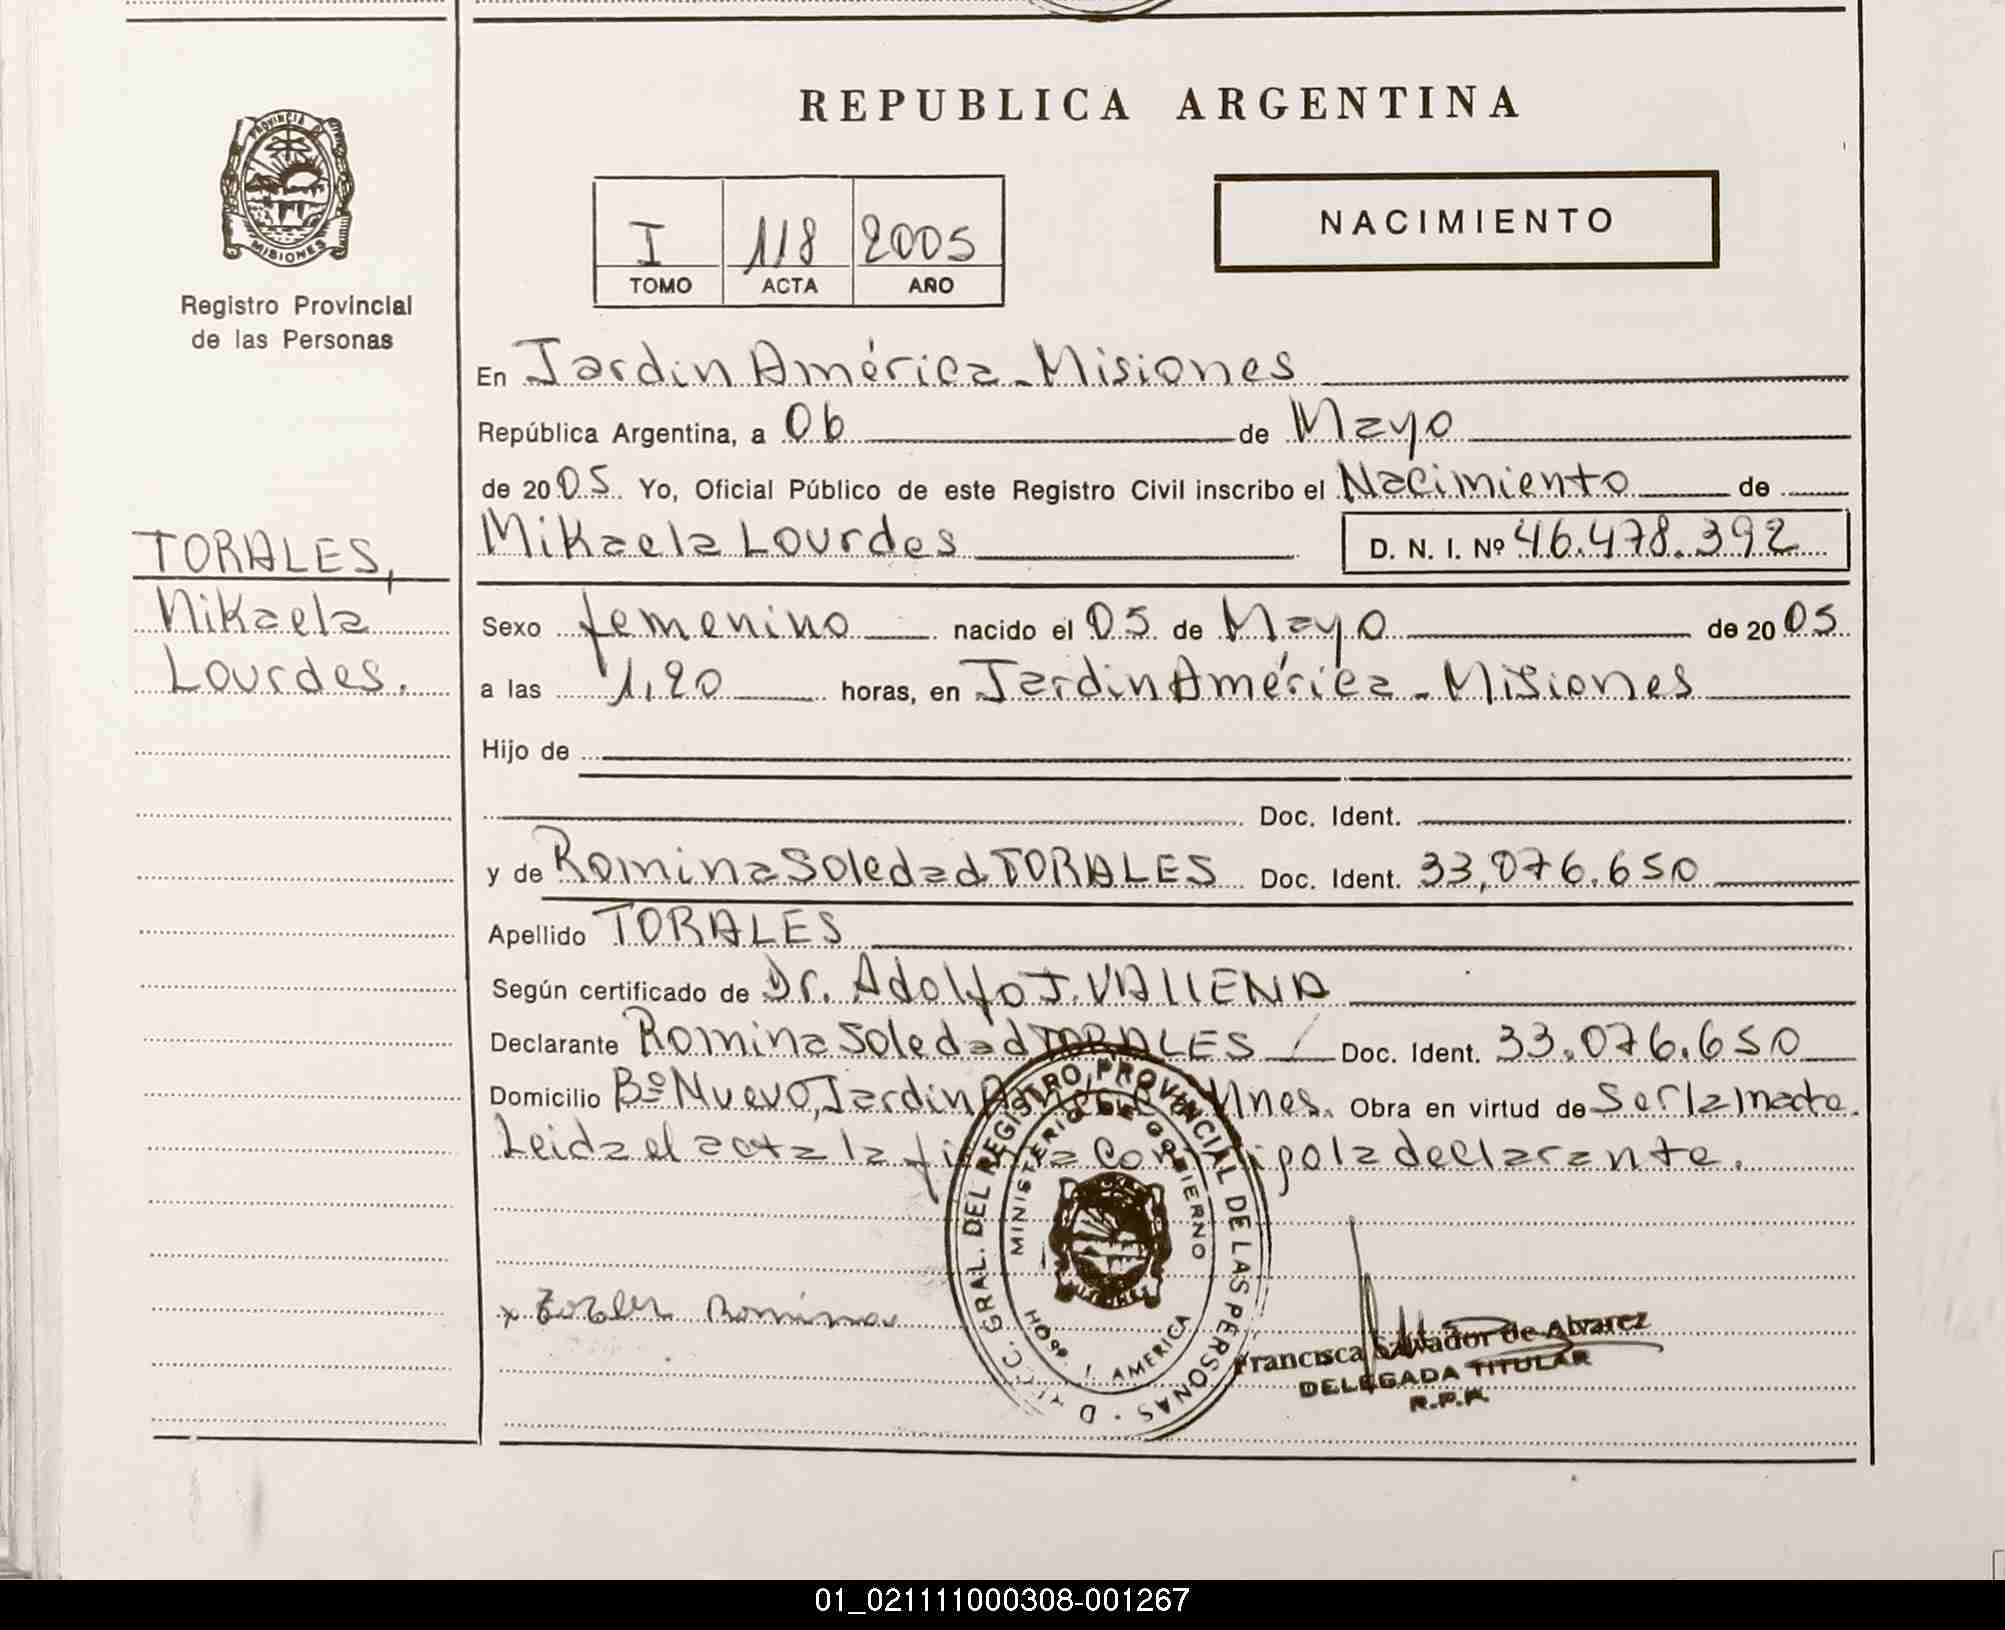 REPUBLICA ARGENTINA
PROVINCIA DE
MISIONES
Registro Provincial
de las Personas
I 118 2005
TOMO ACTA AÑO
NACIMIENTO
En Jardin América - Misiones
República Argentina, a 06 de Mayo
de 2005 Yo, Oficial Público de este Registro Civil inscribo el Nacimiento de
Mikaela Lourdes D. N. I. Nº 46.478.392
TORALES,
Mikaela
Lourdes.
Sexo femenino nacido el 05 de Mayo de 2005
a las 1,20 horas, en Jardin América - Misiones
Hijo de
Doc. Ident.
y de Romina Soledad TORALES Doc. Ident. 33,076.650
Apellido TORALES
Según certificado de Dr. Adolfo J. VALLENA
Declarante Romina Soledad TORALES / Doc. Ident. 33.076.650
Domicilio Bº Nuevo, Jardin América Mnes. Obra en virtud de Ser la madre.
Leida el acta la firma conmigo la declarante.
GRAL. DEL REGISTRO PROVINCIAL DE LAS PERSONAS
MINISTERIO DE GOBIERNO
HOSP. J. AMERICA
x Torales Romina
Francisca Salvador de Alvarez
DELEGADA TITULAR
R.P.P.
01_021111000308-001267